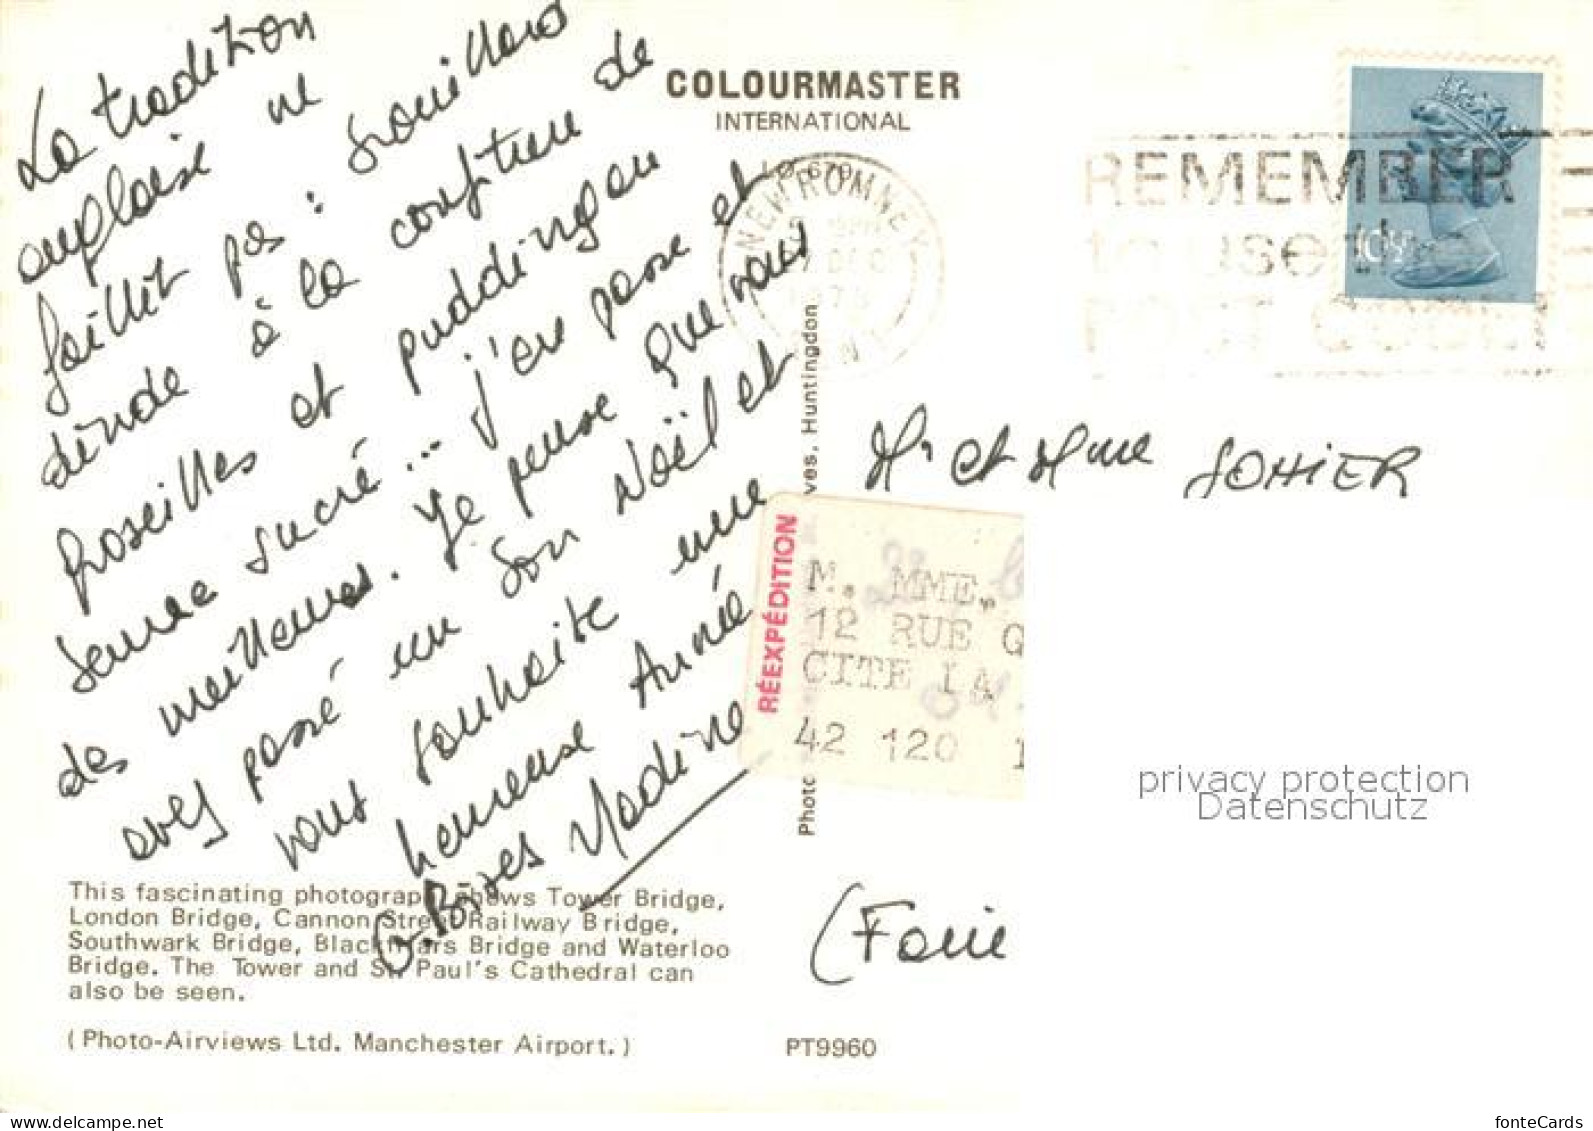 La tradition
anglaise ne
faillit pas : brouillard
dinde à la confiture de
groseilles et pudding au
beurre sucré... j'en passe et
des meilleures. Je pense que vous
avez passé un bon Noël et
vous souhaite une
heureuse Année
G. Bises Nadine
COLOURMASTER
INTERNATIONAL
LO.679
NEW ROMNEY
REMEMBER
to use the
POST CODE
10½
Mr et Mme SOHIER
RÉEXPÉDITION
M. MME.
12 RUE G
CITE LA
42 120
ves, Huntingdon
Photo
This fascinating photograph shows Tower Bridge,
London Bridge, Cannon Street Railway Bridge,
Southwark Bridge, Blackfriars Bridge and Waterloo
Bridge. The Tower and St. Paul's Cathedral can
also be seen.
(Photo-Airviews Ltd. Manchester Airport.)
PT9960
privacy protection
Datenschutz
www.delcampe.net
fonteCards